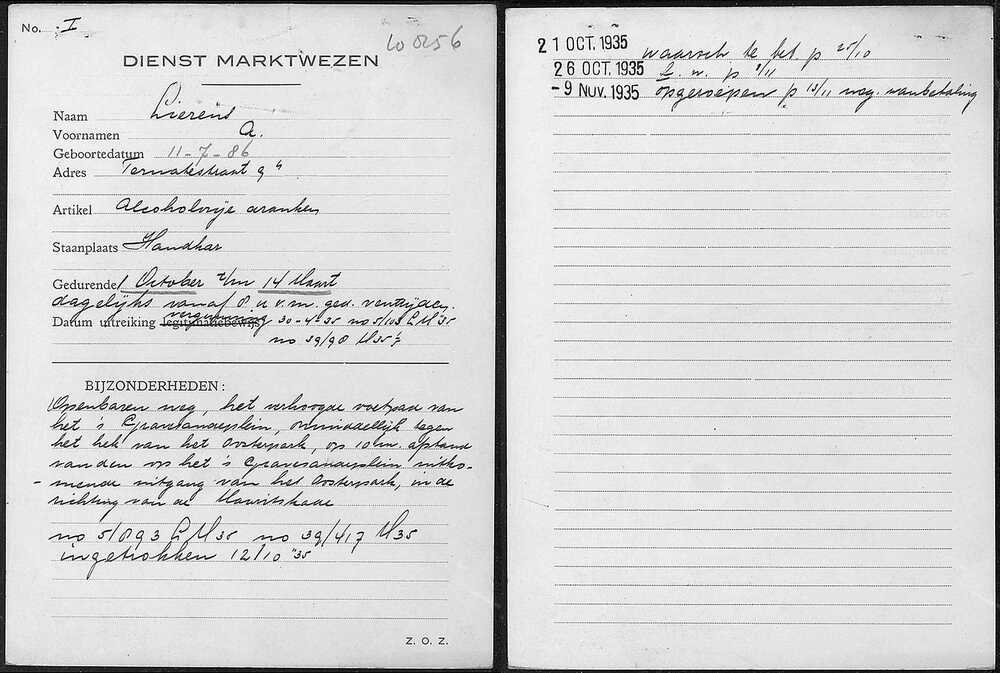 No. I
DIENST MARKTWEZEN
Naam Lierens
Voornamen A.
Geboortedatum 11-7-86
Adres Ternatestraat 9
Artikel Alcoholvrije dranken
Staanplaats Handkar
Gedurende 1 October t/m 14 Maart
dagelijks vanaf 8 u v.m. ged. ventijden.
Datum uitreiking legitimatiebewijs vergunning 30-4-35 no 5/103 L M '35
no 39/98 M 35
BIJZONDERHEDEN:
Openbaren weg, het verhoogde voetpad van
het 's Gravesandeplein, onmiddellijk tegen
het hek van het Oosterpark, op 10 m. afstand
van den op het 's Gravesandeplein uitko-
mende uitgang van het Oosterpark, in de
richting van de Mauritskade
no 5/893 L M 35 no 39/417 M 35
ingetrokken 12/10 '35
Z. O. Z.
21 OCT. 1935 waarsch te bet p 25/10
26 OCT. 1935 p 2/11
-9 NOV. 1935 opgeroepen p 13/11 weg. wanbetaling